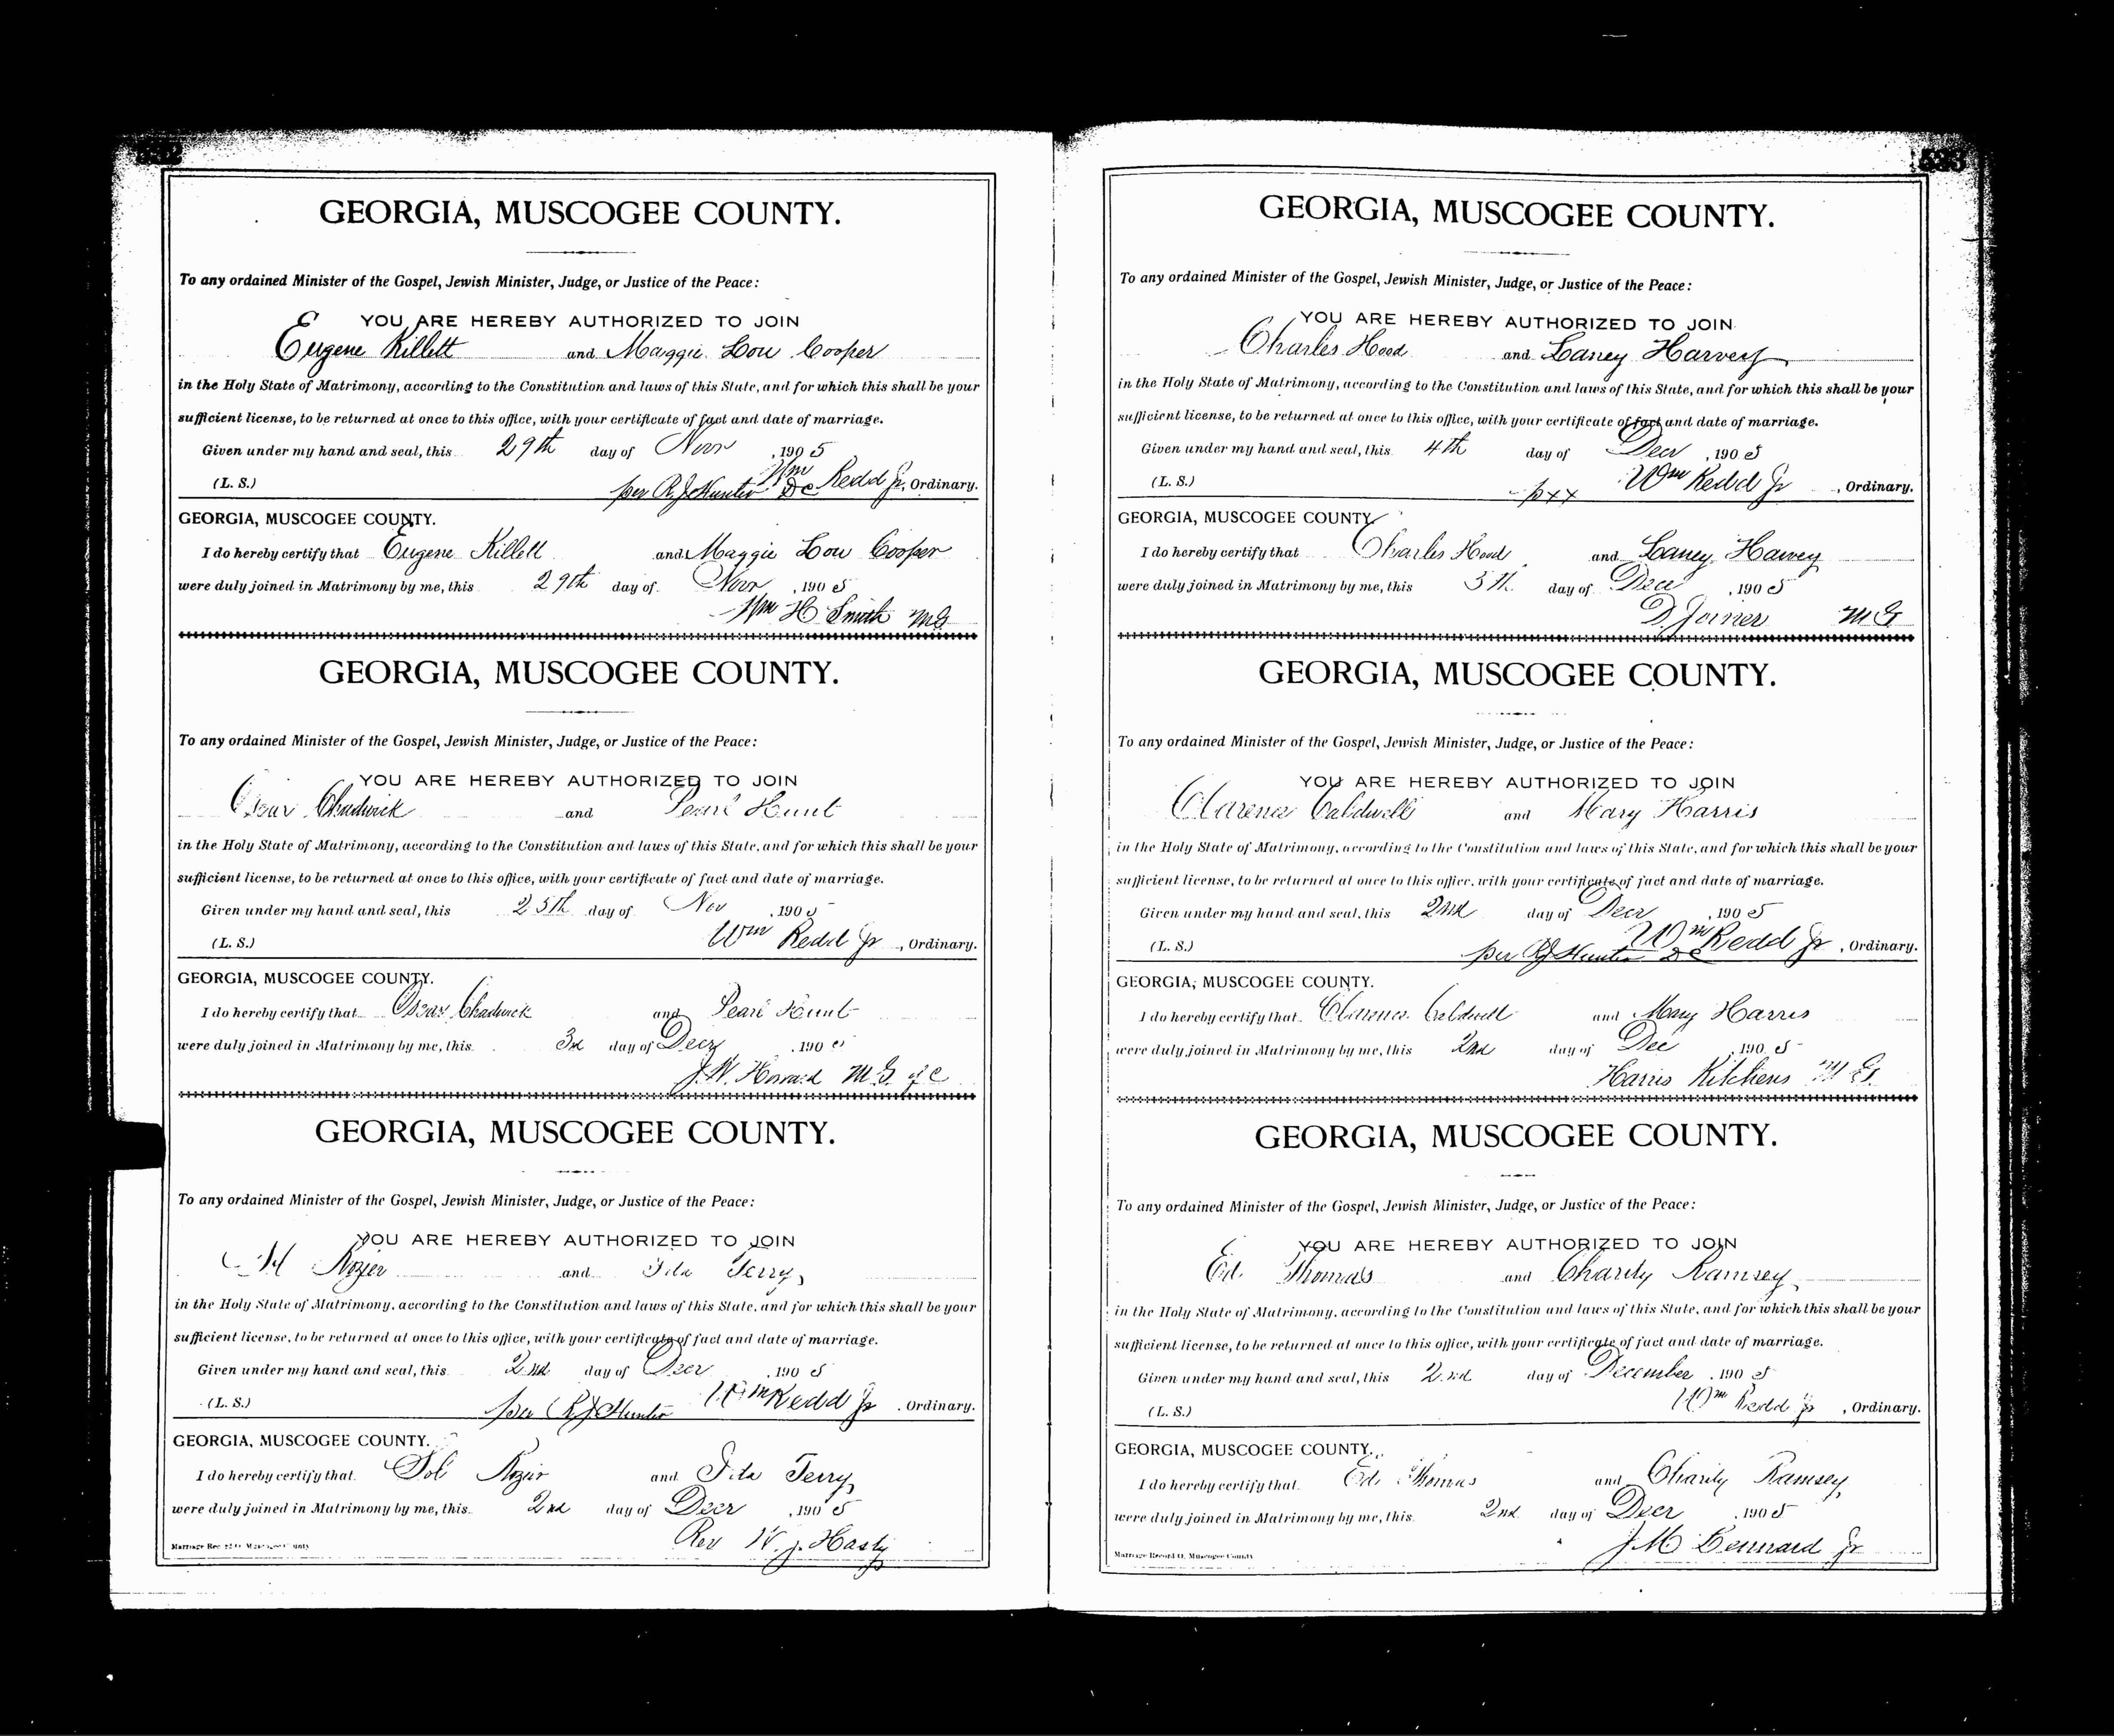 GEORGIA, MUSCOGEE COUNTY.
To any ordained Minister of the Gospel, Jewish Minister, Judge, or Justice of the Peace:
YOU ARE HEREBY AUTHORIZED TO JOIN
Eugene Killett and Maggie Lou Cooper
in the Holy State of Matrimony, according to the Constitution and laws of this State, and for which this shall be your
sufficient license, to be returned at once to this office, with your certificate of fact and date of marriage.
Given under my hand and seal, this 29th day of Novr, 1905
(L. S.) per R J Hunter DC Wm Redd Jr, Ordinary.
GEORGIA, MUSCOGEE COUNTY.
I do hereby certify that Eugene Killett and Maggie Lou Cooper
were duly joined in Matrimony by me, this 29th day of Novr, 1905
Wm H Smith MG
GEORGIA, MUSCOGEE COUNTY.
To any ordained Minister of the Gospel, Jewish Minister, Judge, or Justice of the Peace:
YOU ARE HEREBY AUTHORIZED TO JOIN
Oscar Chadwick and Pearl Hunt
in the Holy State of Matrimony, according to the Constitution and laws of this State, and for which this shall be your
sufficient license, to be returned at once to this office, with your certificate of fact and date of marriage.
Given under my hand and seal, this 25th day of Nov, 1905
(L. S.) Wm Redd Jr, Ordinary.
GEORGIA, MUSCOGEE COUNTY.
I do hereby certify that Oscar Chadwick and Pearl Hunt
were duly joined in Matrimony by me, this 3rd day of Decr, 1905
J. W. Howard M. G.
GEORGIA, MUSCOGEE COUNTY.
To any ordained Minister of the Gospel, Jewish Minister, Judge, or Justice of the Peace:
YOU ARE HEREBY AUTHORIZED TO JOIN
Rozier and Ida Terry
in the Holy State of Matrimony, according to the Constitution and laws of this State, and for which this shall be your
sufficient license, to be returned at once to this office, with your certificate of fact and date of marriage.
Given under my hand and seal, this 2nd day of Decr, 1905
(L. S.) per R J Hunter Wm Redd Jr, Ordinary.
GEORGIA, MUSCOGEE COUNTY.
I do hereby certify that Sol Rozier and Ida Terry
were duly joined in Matrimony by me, this 2nd day of Decr, 1905
Rev W. J. Hasty
523
GEORGIA, MUSCOGEE COUNTY.
To any ordained Minister of the Gospel, Jewish Minister, Judge, or Justice of the Peace:
YOU ARE HEREBY AUTHORIZED TO JOIN
Charles Hood and Laney Harvey
in the Holy State of Matrimony, according to the Constitution and laws of this State, and for which this shall be your
sufficient license, to be returned at once to this office, with your certificate of fact and date of marriage.
Given under my hand and seal, this 4th day of Decr, 1905
(L. S.) pxx Wm Redd Jr, Ordinary.
GEORGIA, MUSCOGEE COUNTY.
I do hereby certify that Charles Hood and Laney Harvey
were duly joined in Matrimony by me, this 5th day of Decr, 1905
D. Joiner MG
GEORGIA, MUSCOGEE COUNTY.
To any ordained Minister of the Gospel, Jewish Minister, Judge, or Justice of the Peace:
YOU ARE HEREBY AUTHORIZED TO JOIN
Clarence Caldwell and Mary Harris
in the Holy State of Matrimony, according to the Constitution and laws of this State, and for which this shall be your
sufficient license, to be returned at once to this office, with your certificate of fact and date of marriage.
Given under my hand and seal, this 2nd day of Decr, 1905
(L. S.) per R J Hunter DC Wm Redd Jr, Ordinary.
GEORGIA, MUSCOGEE COUNTY.
I do hereby certify that Clarence Caldwell and Mary Harris
were duly joined in Matrimony by me, this 2nd day of Dec, 1905
Harris Kitchens MG
GEORGIA, MUSCOGEE COUNTY.
To any ordained Minister of the Gospel, Jewish Minister, Judge, or Justice of the Peace:
YOU ARE HEREBY AUTHORIZED TO JOIN
Ed. Thomas and Charity Ramsey
in the Holy State of Matrimony, according to the Constitution and laws of this State, and for which this shall be your
sufficient license, to be returned at once to this office, with your certificate of fact and date of marriage.
Given under my hand and seal, this 2nd day of December, 1905
(L. S.) Wm Redd Jr, Ordinary.
GEORGIA, MUSCOGEE COUNTY.
I do hereby certify that Ed. Thomas and Charity Ramsey
were duly joined in Matrimony by me, this 2nd day of Decr, 1905
J M Jr
Marriage Record O, Muscogee County